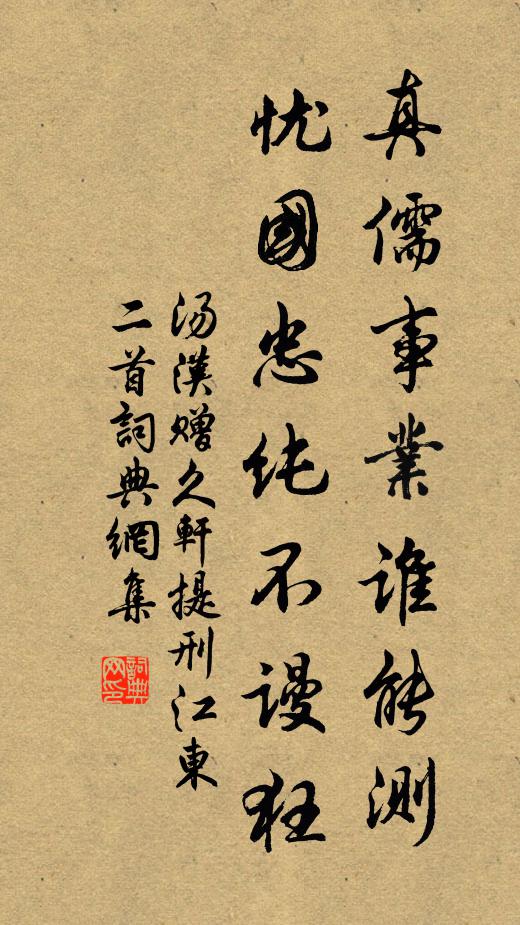 真儒事業誰能測
忧國忠纯不謾狂
汤漢赠久軒提刑江東
二首詞典網集
詞典网印